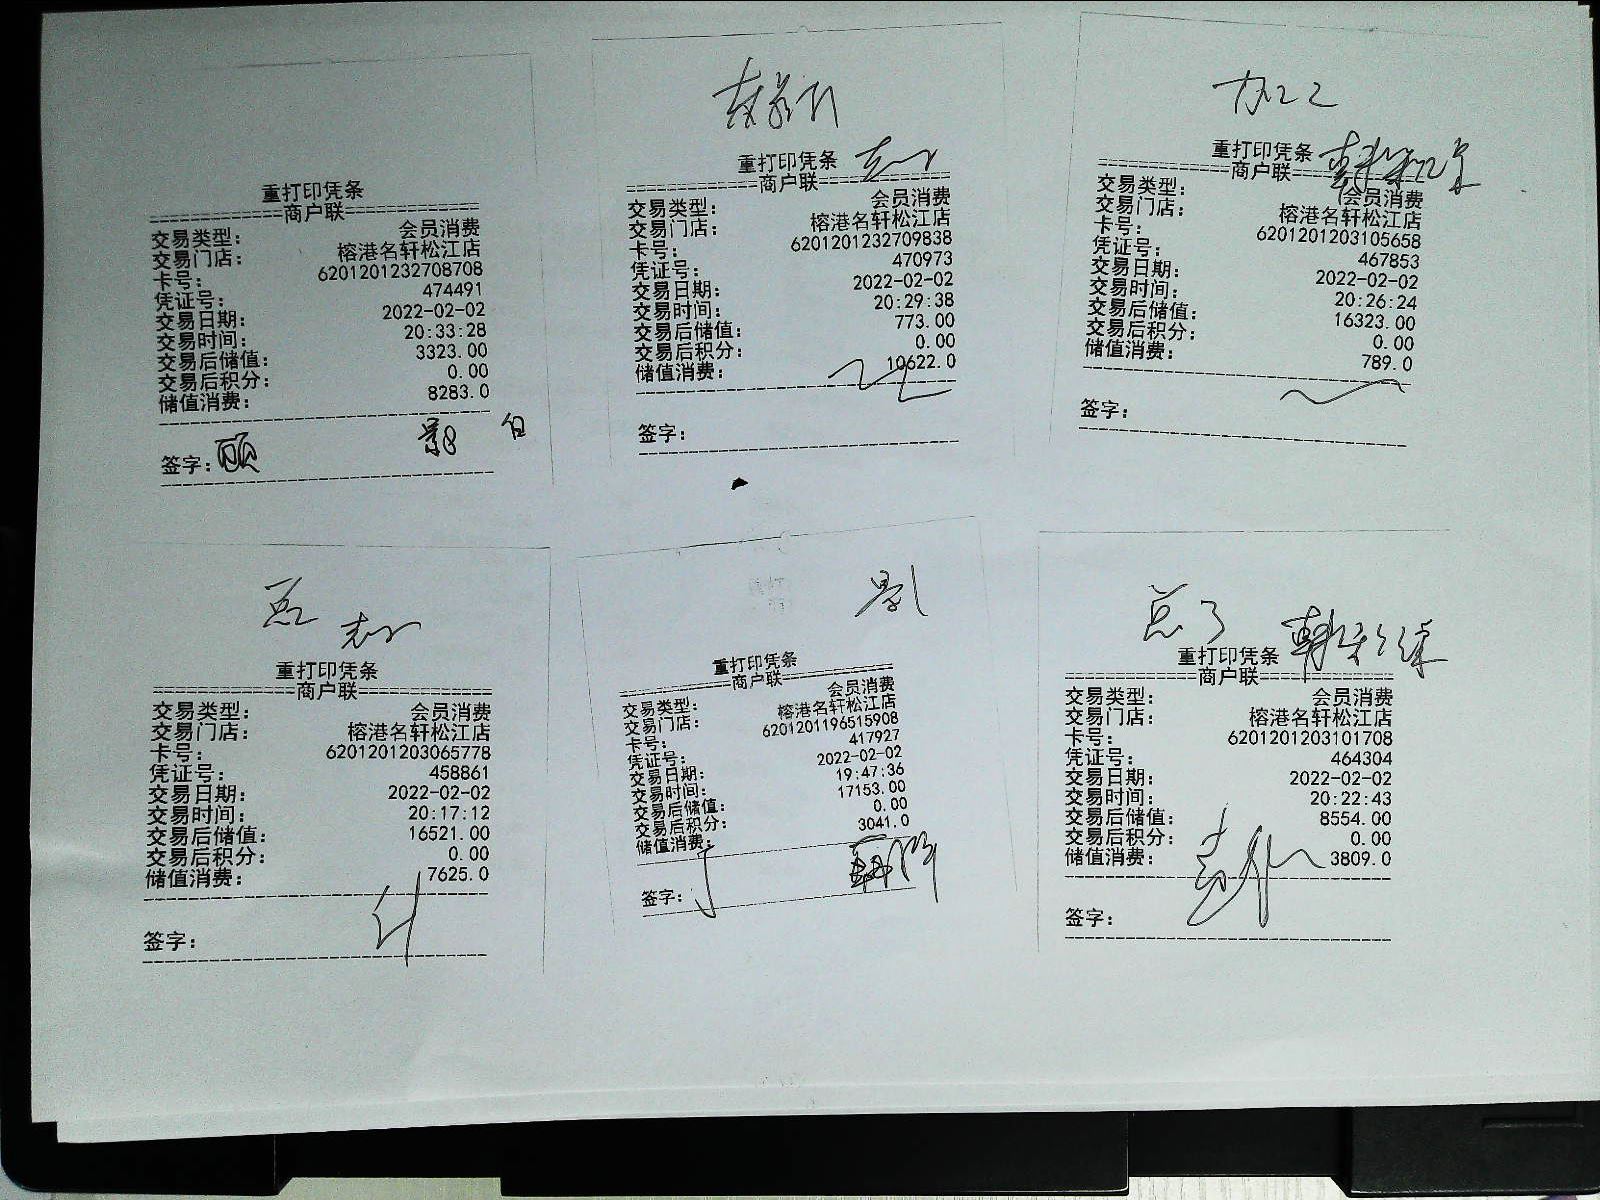 重打印凭条
商户联
交易类型: 会员消费
交易门店: 榕港名轩松江店
卡号: 6201201232708708
凭证号: 474491
交易日期: 2022-02-02
交易时间: 20:33:28
交易后储值: 3323.00
交易后积分: 0.00
储值消费: 8283.0
签字:
重打印凭条
商户联
交易类型: 会员消费
交易门店: 榕港名轩松江店
卡号: 6201201232709838
凭证号: 470973
交易日期: 2022-02-02
交易时间: 20:29:38
交易后储值: 773.00
交易后积分: 0.00
储值消费: 10622.0
签字:
重打印凭条
商户联
交易类型: 会员消费
交易门店: 榕港名轩松江店
卡号: 6201201203105658
凭证号: 467853
交易日期: 2022-02-02
交易时间: 20:26:24
交易后储值: 16323.00
交易后积分: 0.00
储值消费: 789.0
签字:
重打印凭条
商户联
交易类型: 会员消费
交易门店: 榕港名轩松江店
卡号: 6201201203065778
凭证号: 458861
交易日期: 2022-02-02
交易时间: 20:17:12
交易后储值: 16521.00
交易后积分: 0.00
储值消费: 7625.0
签字:
重打印凭条
商户联
交易类型: 会员消费
交易门店: 榕港名轩松江店
卡号: 6201201196515908
凭证号: 417927
交易日期: 2022-02-02
交易时间: 19:47:36
交易后储值: 17153.00
交易后积分: 0.00
储值消费: 3041.0
签字:
重打印凭条
商户联
交易类型: 会员消费
交易门店: 榕港名轩松江店
卡号: 6201201203101708
凭证号: 464304
交易日期: 2022-02-02
交易时间: 20:22:43
交易后储值: 8554.00
交易后积分: 0.00
储值消费: 3809.0
签字: